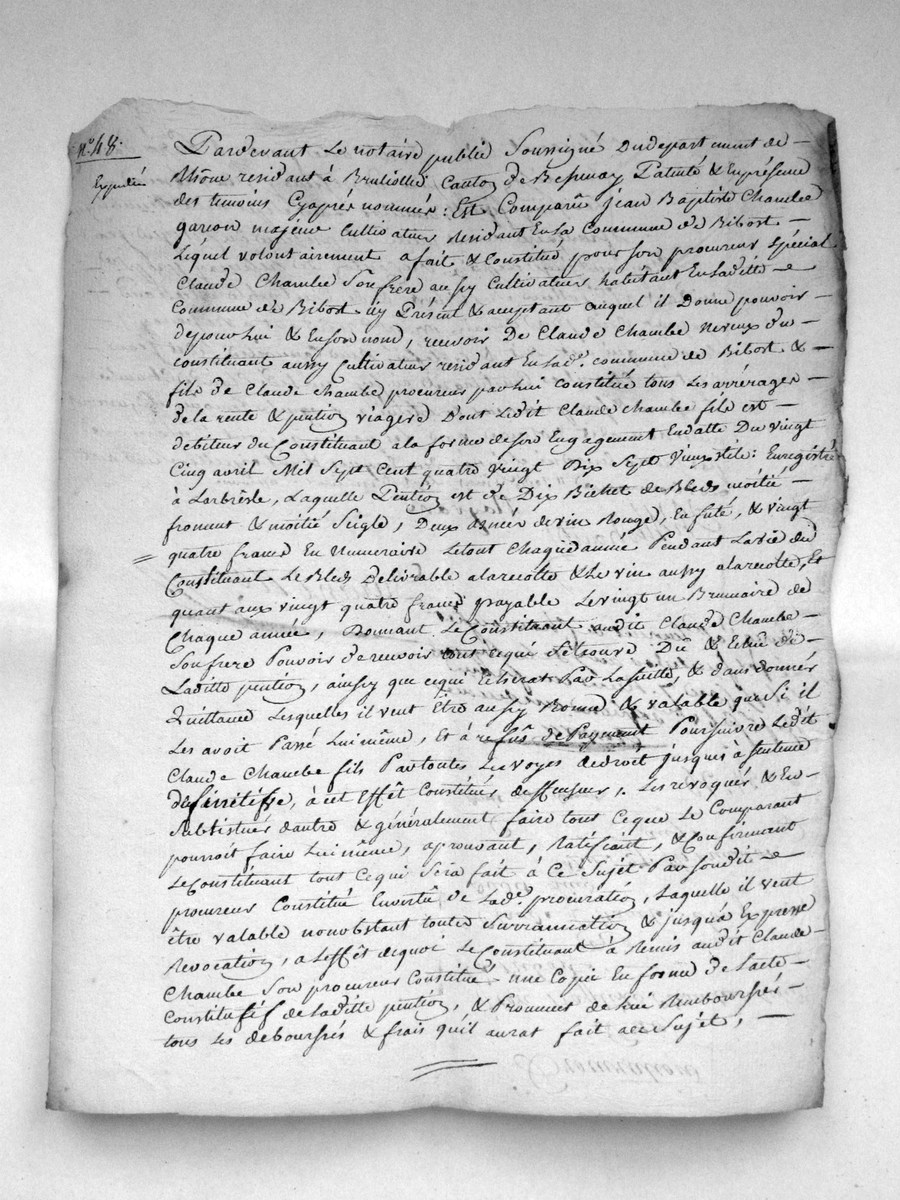 n.° 48.
Expediée
Pardevant Le notaire public Soussigné Du departement de
Rhône residant à Brulliolle Canton de Bessenay Patenté & En présence
des temoins Cyaprès nommés : Est Comparû jean Baptiste Chambe
garcon majeur Cultivateur Residant En La Commune de Bibost
Lequel volontairement a fait & Constitué pour Son procureur Spécial
Claude Chambe Son frere aussy Cultivateur habitant En Laditte
Commune de Bibost icy Présent & aceptant auquel il Donne pouvoir
de pour Lui & En son nom, recevoir De Claude Chambe neveux du
constituant aussy Cultivateur residant En Lad.e commune de Bibost &
fils de Claude Chambe procureur par Lui constitué tous Les arrérages
de la rente & pention viagere Dont Ledit Claude Chambe fils est
debiteur du Constituant a la forme de son Engagement En datte Du vingt
Cinq avril Mil Sept Cent quatre vingt Dix Sept vieux stile : Enregistré
à Larbresle, Laquelle Pention est de Dix Bichet de Bled moitié
froment & moitié Seigle, Deux asnées de vin Rouge, En futé, & vingt
quatre francs En Numeraire Letout Chaque année Pendant La vie du
Constituant Le Bled Delivrable a la recolte & Le vin aussy a la recolte, Et
quant aux vingt quatre francs payable Le vingt un Brumaire de
Chaque année, Donnant Le Constituant audit Claude Chambe
Son frere Pouvoir de recevoir tout cequi Setrouve Dû & Echû de
Laditte pention, ainsy que cequi Echerat Par Lasuitte, & d'en donner
Quittance Lesquelles il veut Être aussy Bonne & valable que Si il
Les avoit Passé Lui même, Et à refus de Payement Poursuivre Ledit
Claude Chambe fils Par toutes Les voyes de droit jusques à Sentence
deffinitifve, à cet Effêt Constituer deffenseur, Les revoquer & En
Substituer dautre & généralement faire tout Ceque Le Comparant
pourroit faire Lui même, aprouvant, Ratifiant, & Confirmant
Le Constituant tout Cequi Sera fait à Ce Sujet Par Son dit
procureur Constitué En vertu de Lad.e procuration, Laquelle il veut
être valable nonobstant toutte Surrannation & jusqu'a Expresse
Revocation, a Leffêt de quoi Le Constituant à Remis audit Claude
Chambe Son procureur Constitué une Copie En forme de Lacte
Constitutif de Laditte pention, & Promet de Lui Rembourser
tous Les deboursés & frais quil aurat fait a ce Sujet,